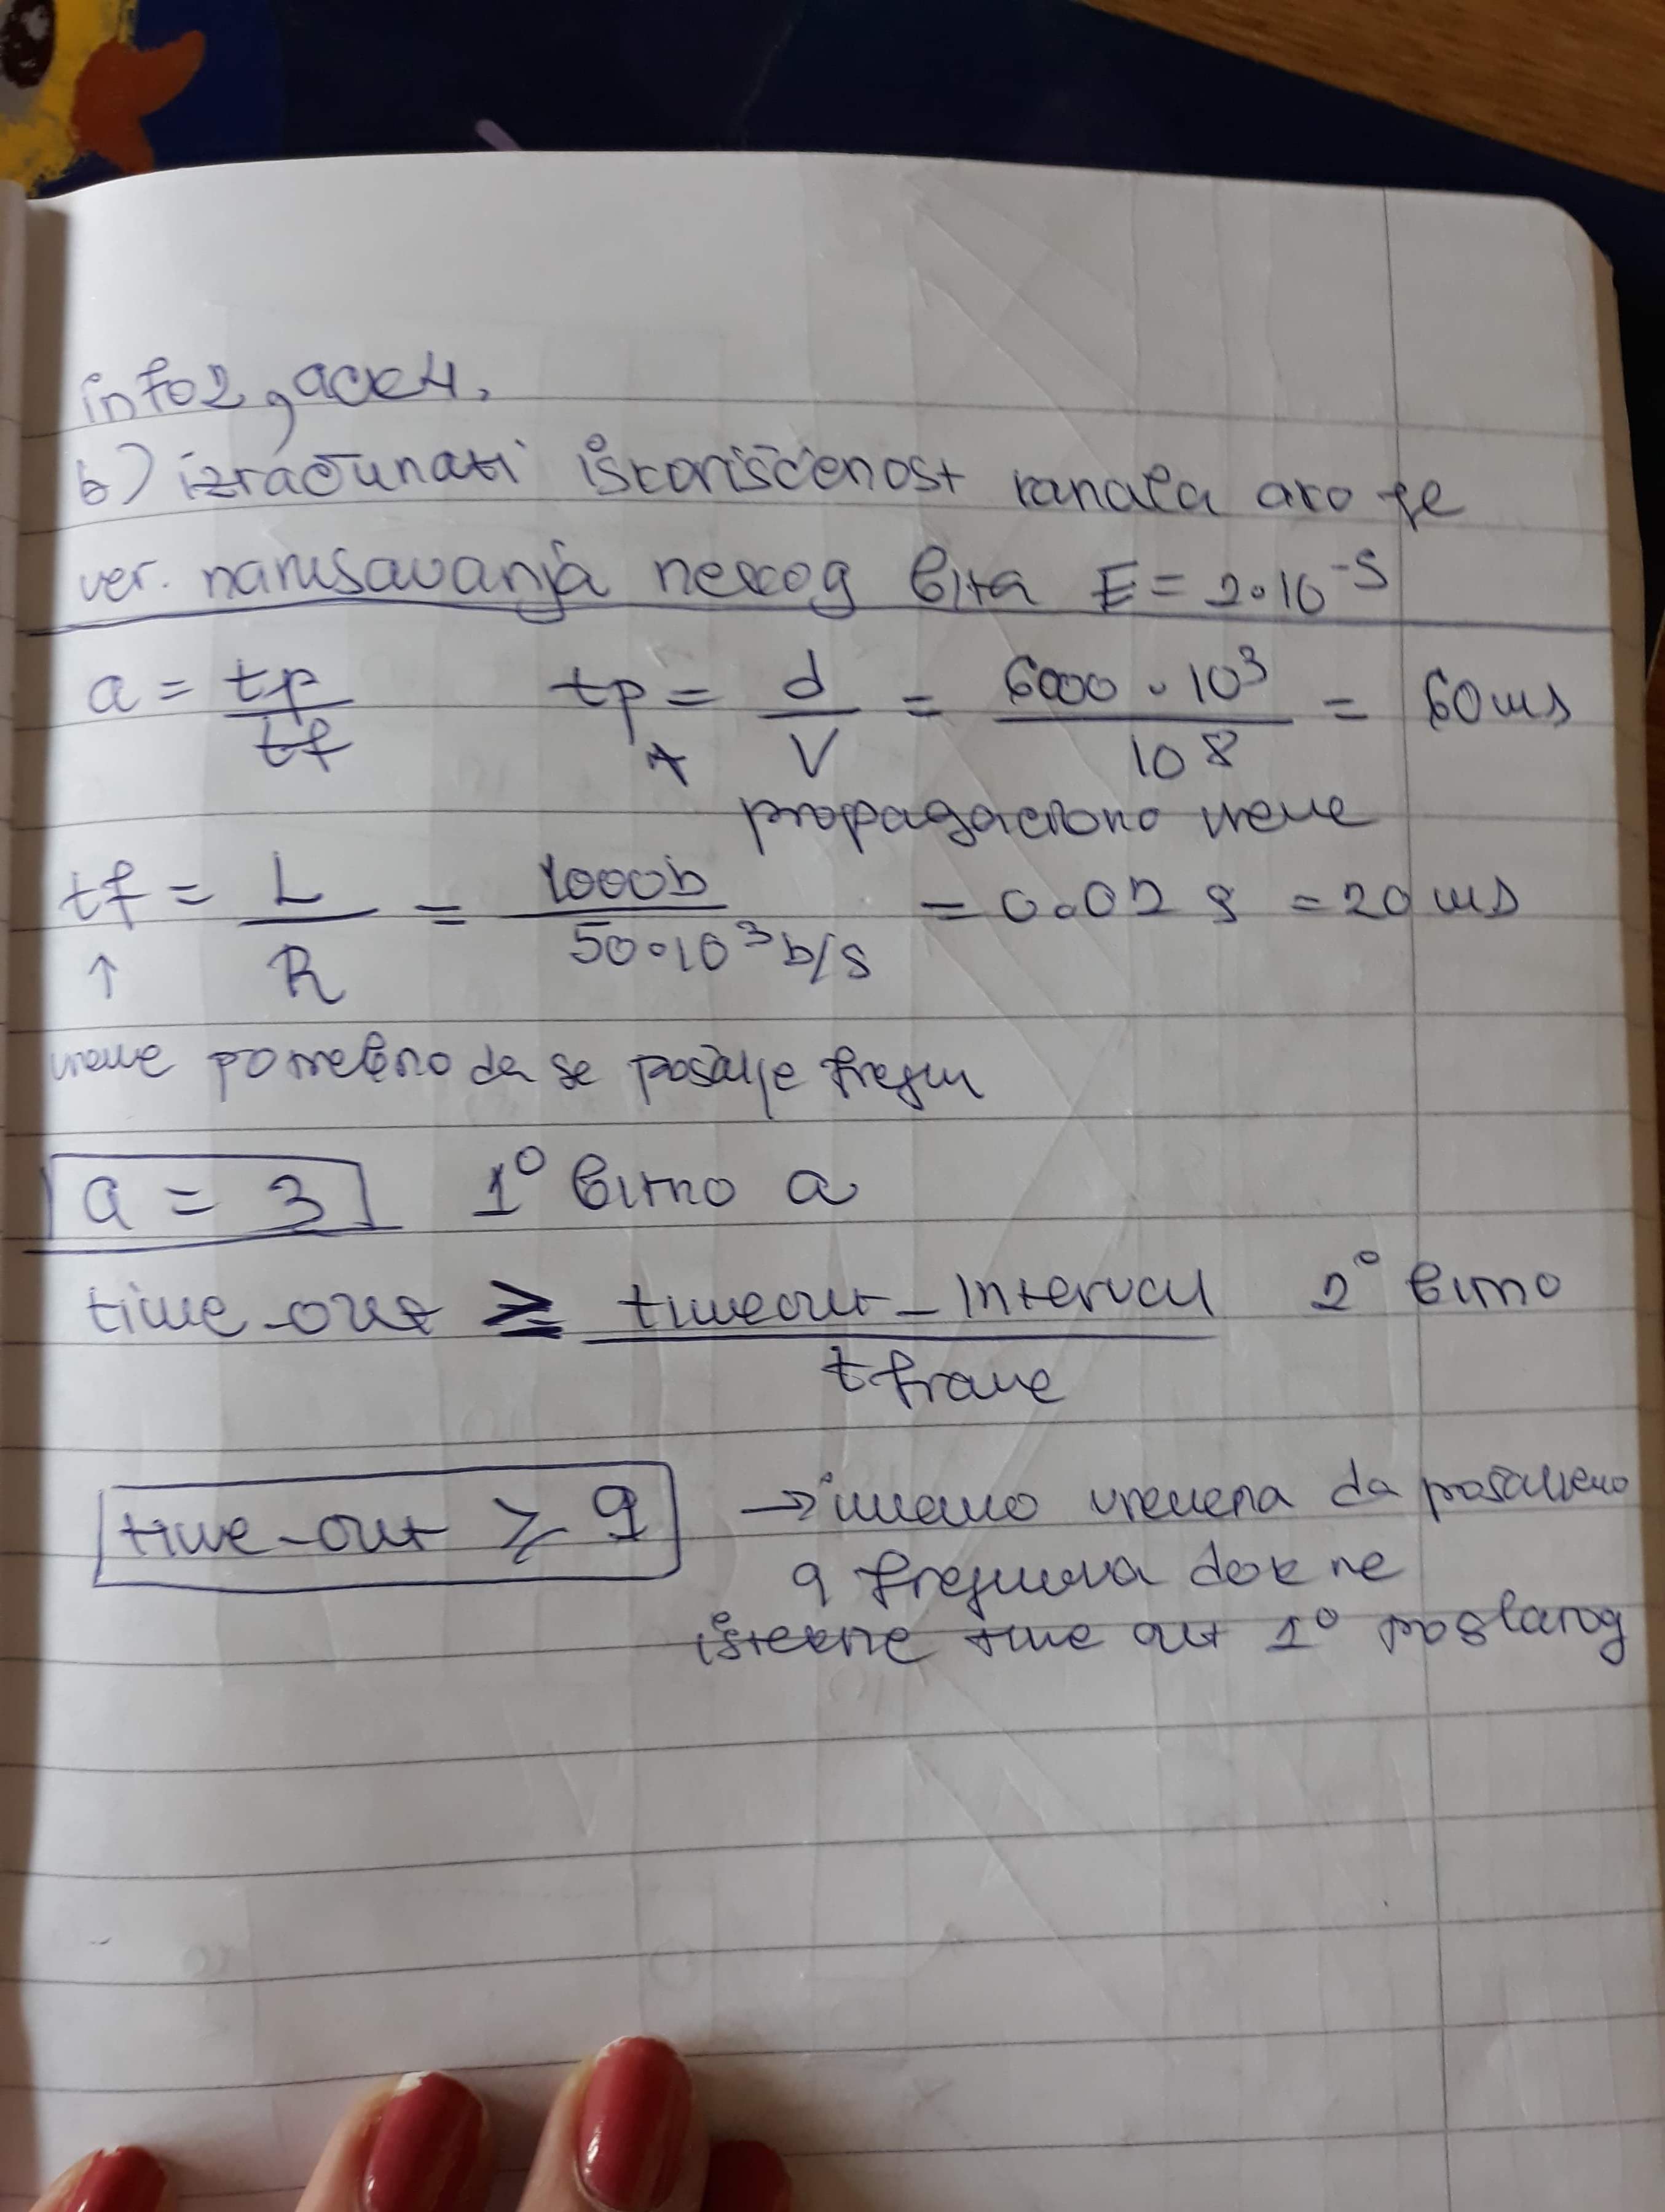 info2, ack4.
b) izračunati iskorišćenost kanala ako je
ver. narušavanja nekog bita E = 2·10⁻⁵
a = tp/tf    tp = d/V = 6000·10³/10⁸ = 60ms
propagaciono vreme
tf = L/R = 1000b/50·10³b/s = 0.02 s = 20 ms
↑
vreme potrebno da se pošalje frejm
a = 3    1° bitno a
time-out ≥ timeout-interval/tframe    2° bitno
time-out ≥ 9 → imamo vremena da pošaljemo
9 frejmova dok ne
istekne time out 1° poslatog